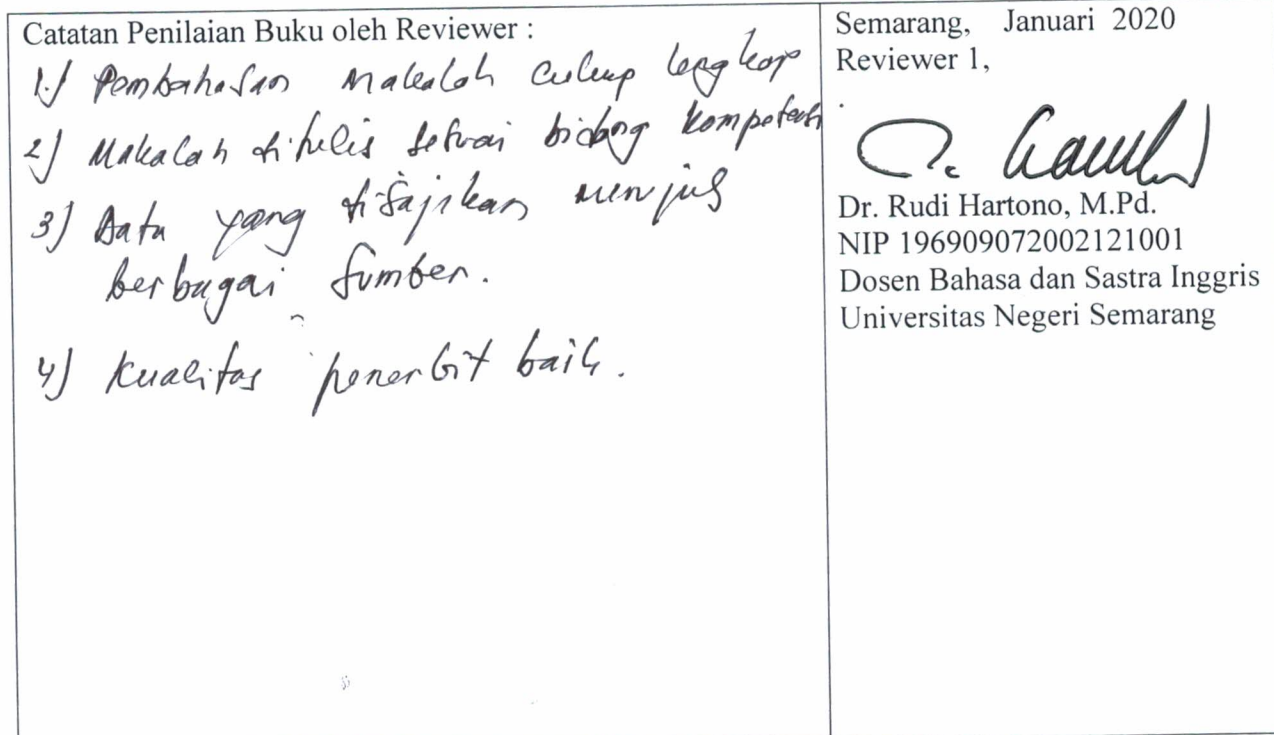 Catatan Penilaian Buku oleh Reviewer :
1.) Pembahasan makalah cukup lengkap
2) Makalah ditulis sesuai bidang kompetensi
3) Data yang disajikan
berbagai sumber.
4) Kualitas penerbit baik.
Semarang, Januari 2020
Reviewer 1,
Dr. Rudi Hartono, M.Pd.
NIP 196909072002121001
Dosen Bahasa dan Sastra Inggris
Universitas Negeri Semarang